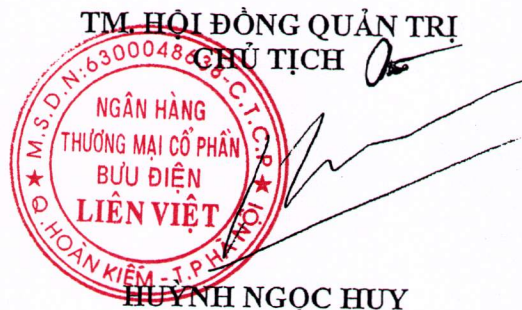 TM. HỘI ĐỒNG QUẢN TRỊ
CHỦ TỊCH
M.S.D.N:6300048638-C.T.C.P
NGÂN HÀNG
THƯƠNG MẠI CỔ PHẦN
BƯU ĐIỆN
LIÊN VIỆT
Q.HOÀN KIẾM - T.P HÀ NỘI
HUỲNH NGỌC HUY